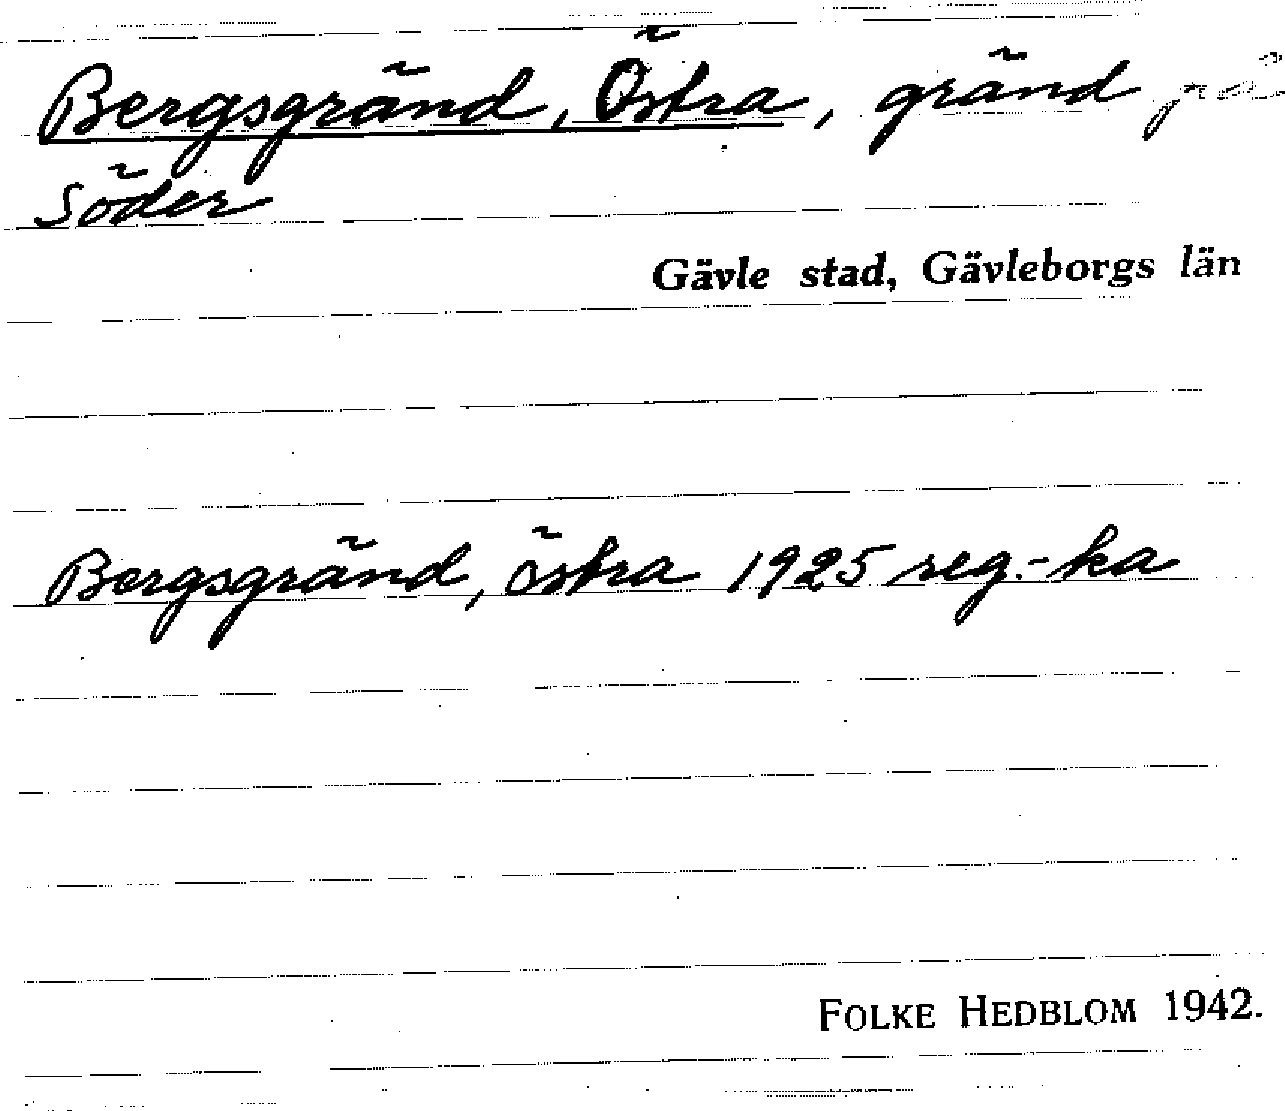 Bergsgränd, Östra, gränd på
Söder
Gävle stad, Gävleborgs län
Bergsgränd, östra 1925 reg.-ka
FOLKE HEDBLOM 1942.